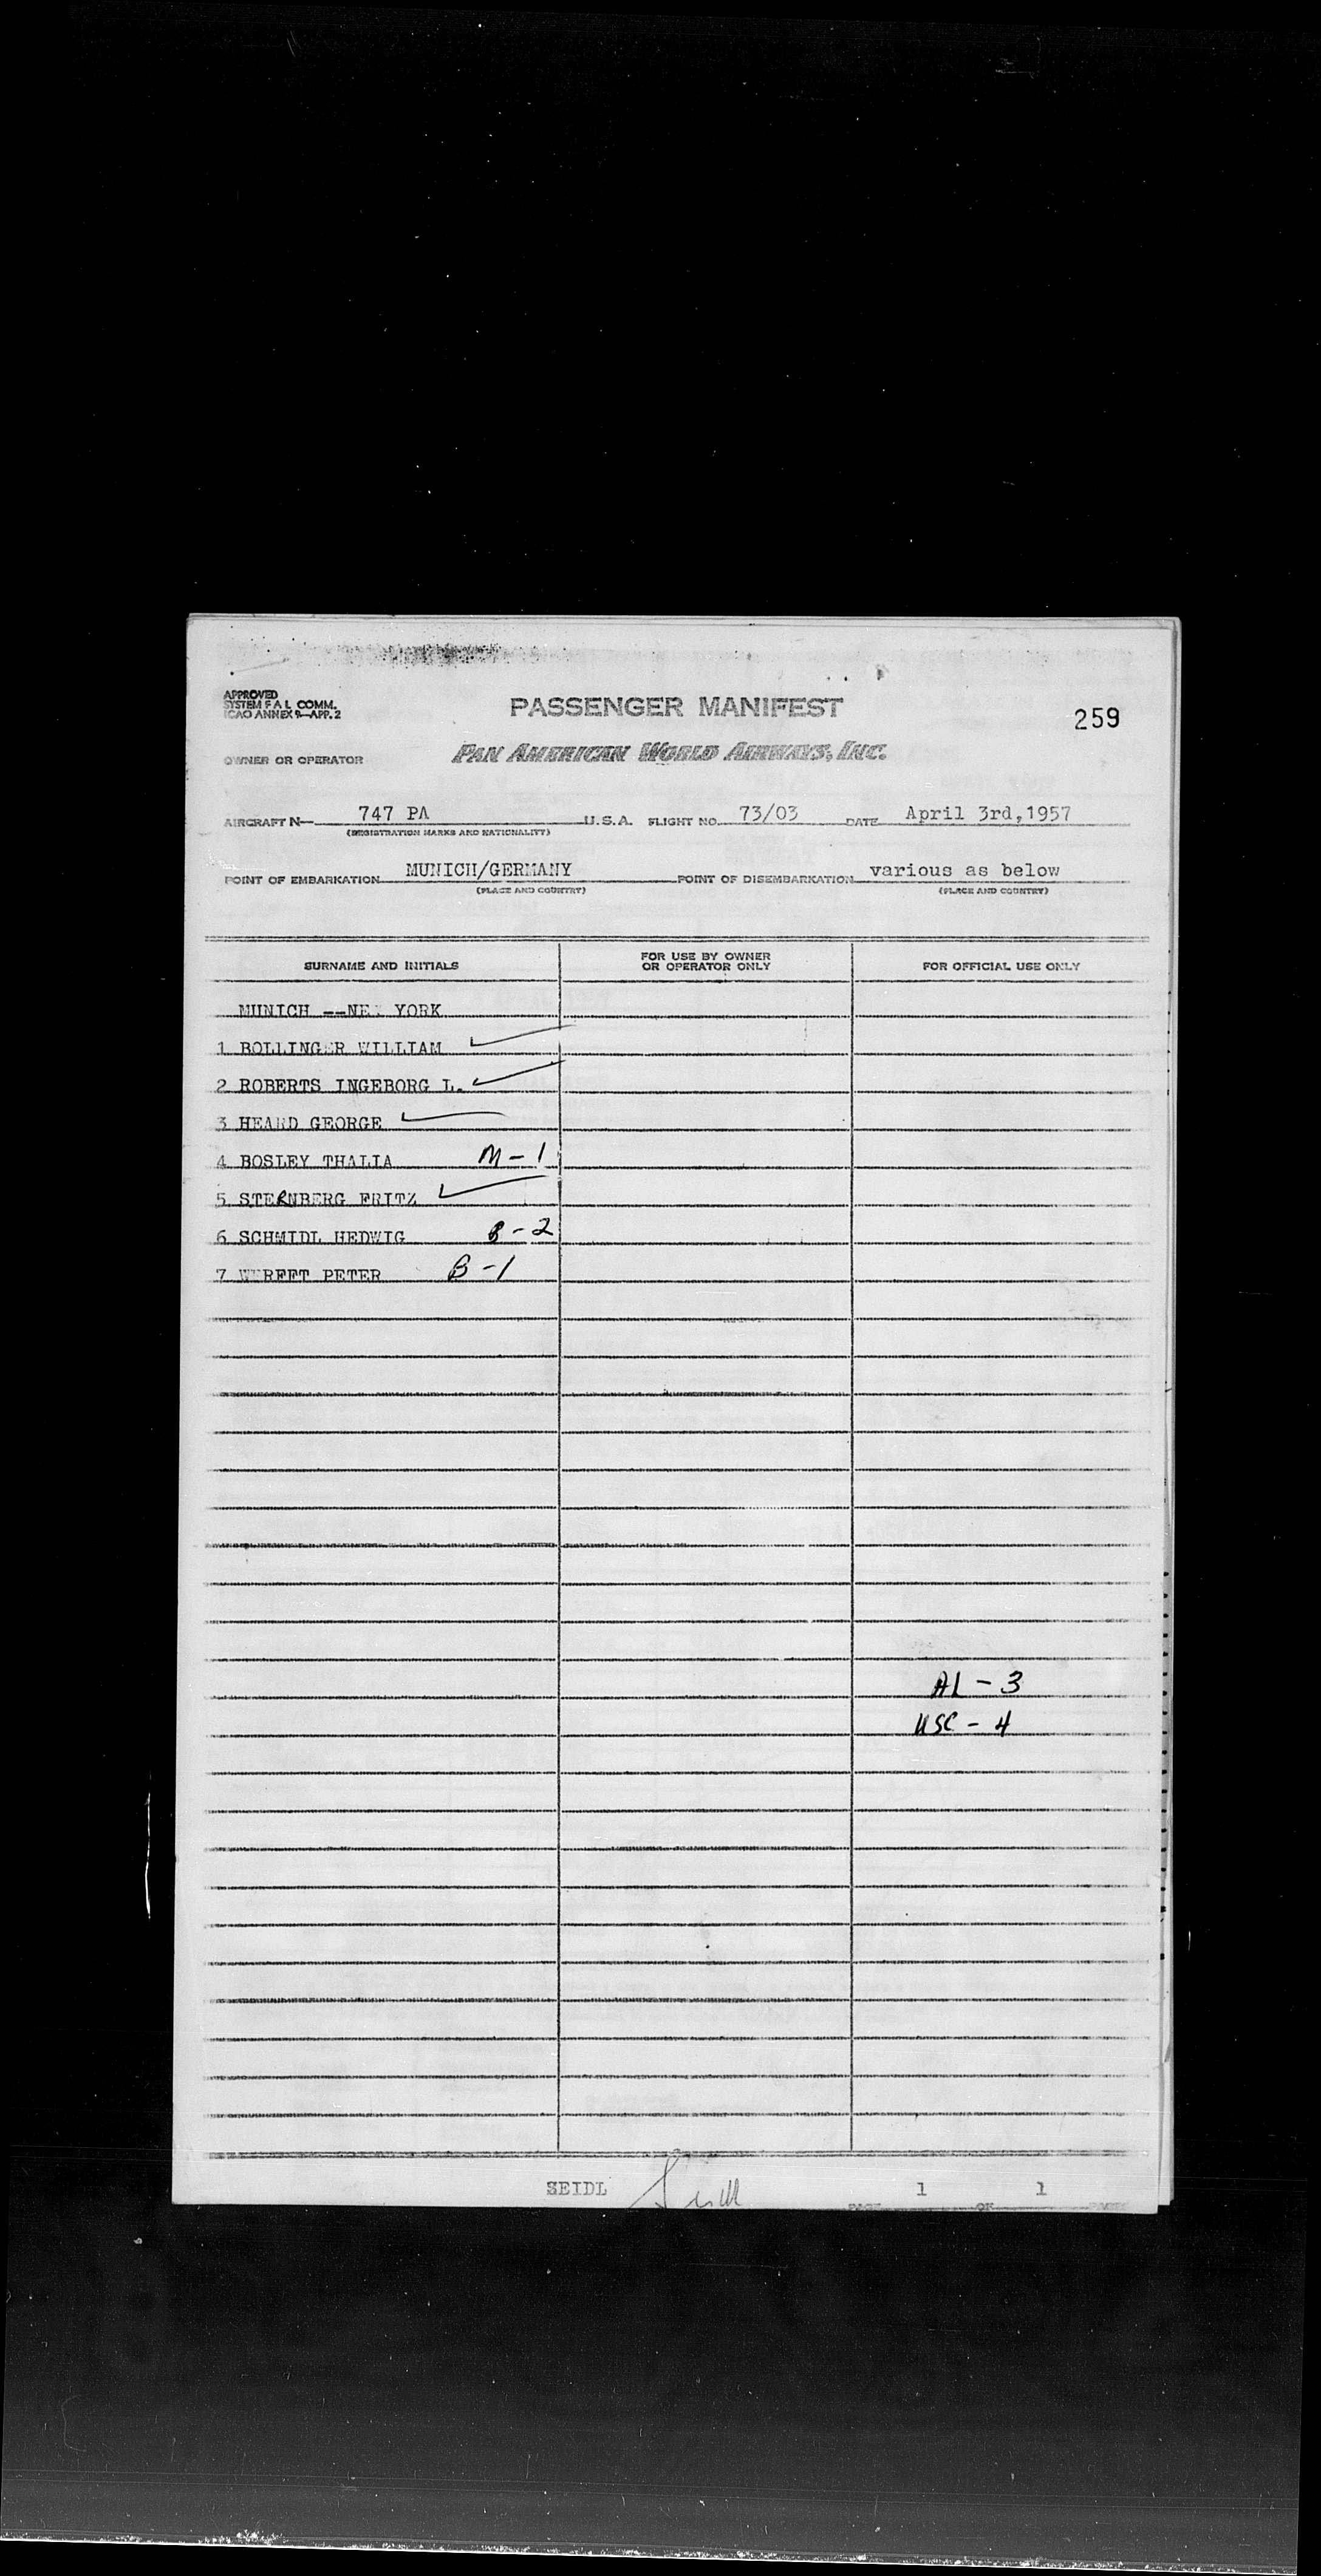 APPROVED
SYSTEM F A L COMM.
ICAO ANNEX 9—APP. 2
PASSENGER MANIFEST
259
OWNER OR OPERATOR
PAN AMERICAN WORLD AIRWAYS, INC.
AIRCRAFT N— 747 PA U.S.A. FLIGHT NO. 73/03 DATE April 3rd,1957
(REGISTRATION MARKS AND NATIONALITY)
POINT OF EMBARKATION MUNICH/GERMANY POINT OF DISEMBARKATION various as below
(PLACE AND COUNTRY) (PLACE AND COUNTRY)
SURNAME AND INITIALS
FOR USE BY OWNER
OR OPERATOR ONLY
FOR OFFICIAL USE ONLY
MUNICH --NEW YORK
1 BOLLINGER WILLIAM
2 ROBERTS INGEBORG L.
3 HEARD GEORGE
4 BOSLEY THALIA M - 1
5 STERNBERG FRITZ
6 SCHMIDL HEDWIG B - 2
7 PETER B - 1
AL - 3
USC - 4
SEIDL Seidl
PAGE 1 OF 1 PAGES